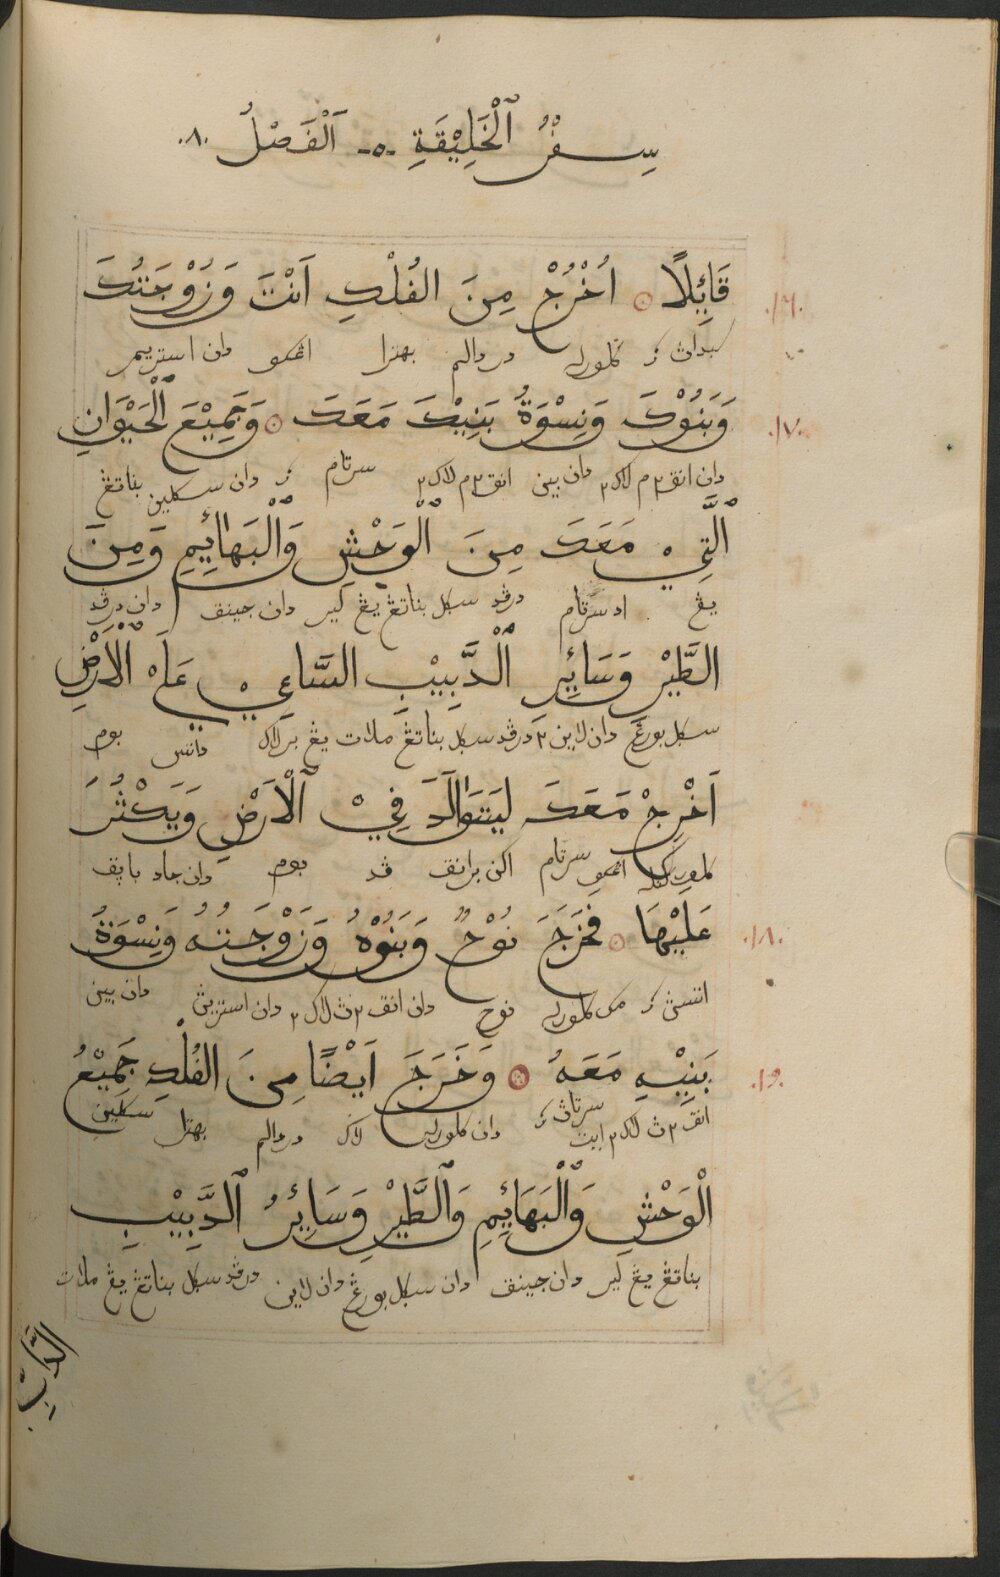 سِفْرُ ٱلْخَلِيْقَةِ -٥- اَلْفَصْلُ .٨.
قَايِٕلًا ۞ اُخْرُجْ مِنَ الفُلْكِ اَنْتَ وَزُوْجَتُكَ .١٦.
كلورله در دالم بهترا اڠكو دان استريم
وَبَنُوْكَ وَنِسْوَةُ بَنِيْكَ مَعَكَ ۞ وَجَمِيْعَ ٱلْحَيْوَانِ .١٧.
دان انق٢م لاكي٢ دان بيني انق٢م لاكي٢ سرتام دان سكلين بناتڠ
ٱلَّتِيْ مَعَكَ مِنَ ٱلْوَحْشِ وَٱلْبَهَائِمِ وَمِنَ
يڠ اد سرتام درڤد سكل بناتڠ يڠ لير دان جينق دان درڤد
الطَّيْرِ وَسَائِرِ ٱلْدَّبِيْبِ السَّاعِيْ عَلَىْ ٱلْاَرْضِ
سكل بورڠ دان لاين٢ درڤد سكل بناتڠ ملات يڠ برلاكي داتس بوم
اَخْرِجْ مَعَكَ لِيَتَوَالَدَ فِيْ ٱلْاَرْضِ وَيَكْثُرَ
اڠكو سرتام اكن برانق ڤد بوم دان جاد باڽق
عَلَيْهَا ۞ فَخَرَجَ نُوْحٌ وَبَنُوْهُ وَزَوْجَتُهُ وَنِسْوَةُ .١٨.
اتسڽ مك كلورله نوح دان انق٢ڽ لاكي٢ دان استريڽ دان بيني
بَنِيْهِ مَعَهُ ۞ وَخَرَجَ اَيْضًا مِنَ الفُلْكِ جَمِيْعُ .١٩.
انق٢ڽ لاكي٢ ايت سرتاڽ دان كلورله لاكي در دالم بهترا سكلين
ٱلْوَحْشِ وَٱلْبَهَائِمِ وَٱلْطَّيْرِ وَسَائِرُ ٱلدَّبِيْبِ
بناتڠ يڠ لير دان جينق دان سكل بورڠ دان لاين درڤد سكل بناتڠ يڠ ملات